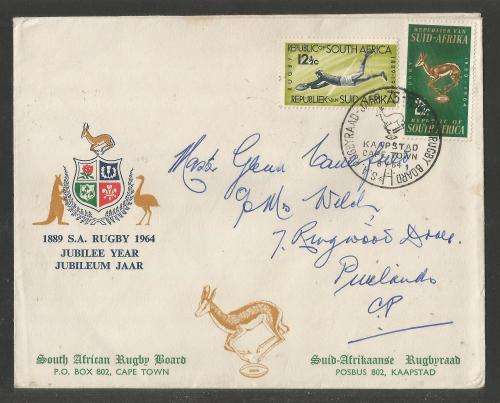 REPUBLIC OF SOUTH AFRICA
12½c
RUGBY
1889-1964
REPUBLIEK VAN SUID-AFRIKA
REPUBLIEK VAN
SUID-AFRIKA
1889-1964
2½c
REPUBLIC OF
SOUTH AFRICA
KAAPSTAD
CAPE TOWN
RUGBY BOARD
1889 S.A. RUGBY 1964
JUBILEE YEAR
JUBILEUM JAAR
Glenn
c/o Mrs Wilds
7, Ringwood Drive
Pinelands
CP
South African Rugby Board
P.O. BOX 802, CAPE TOWN
Suid-Afrikaanse Rugbyraad
POSBUS 802, KAAPSTAD